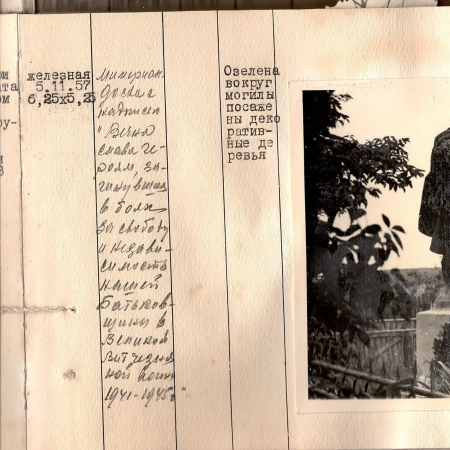 ри
ита
ом
ру-
железная
5.11.57
6,25х5,25
мимориал.
доска с
надписью
"Вечна
слава ге-
роям, за-
гинувшим
в боях
за свободу
и незави-
симость
нашей
Батьков-
щины в
Великой
Витчизня
ной войне
1941-1945г"
Озелена
вокруг
могилы
посаже
ны деко
ратив-
ные де
ревья